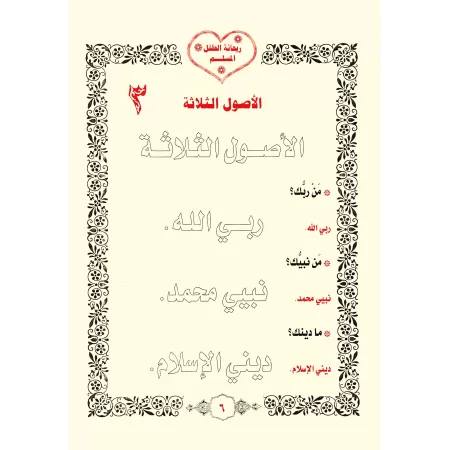 ريحانة الطفل
المسلم
٣
الأصول الثلاثة
الأصول الثلاثة
مَنْ ربُّك؟
ربي الله.
ربي الله.
مَن نبيُّك؟
نبيي محمد.
نبيي محمد.
ما دينك؟
ديني الإسلام.
ديني الإسلام.
٦